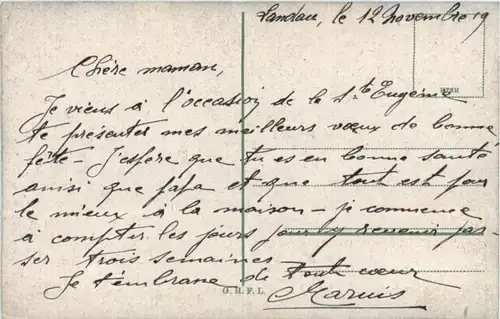 Landau, le 12 novembre 19
Chère maman,
Je viens à l'occasion de la Ste Eugénie
te présenter mes meilleurs vœux de bonne
fête - J'espère que tu es en bonne santé
ainsi que papa et que tout est pour
le mieux à la maison - je commence
à compter les jours pour y revenir pas-
ser trois semaines
Je t'embrasse de tout cœur
Marius
G. H. F. L.